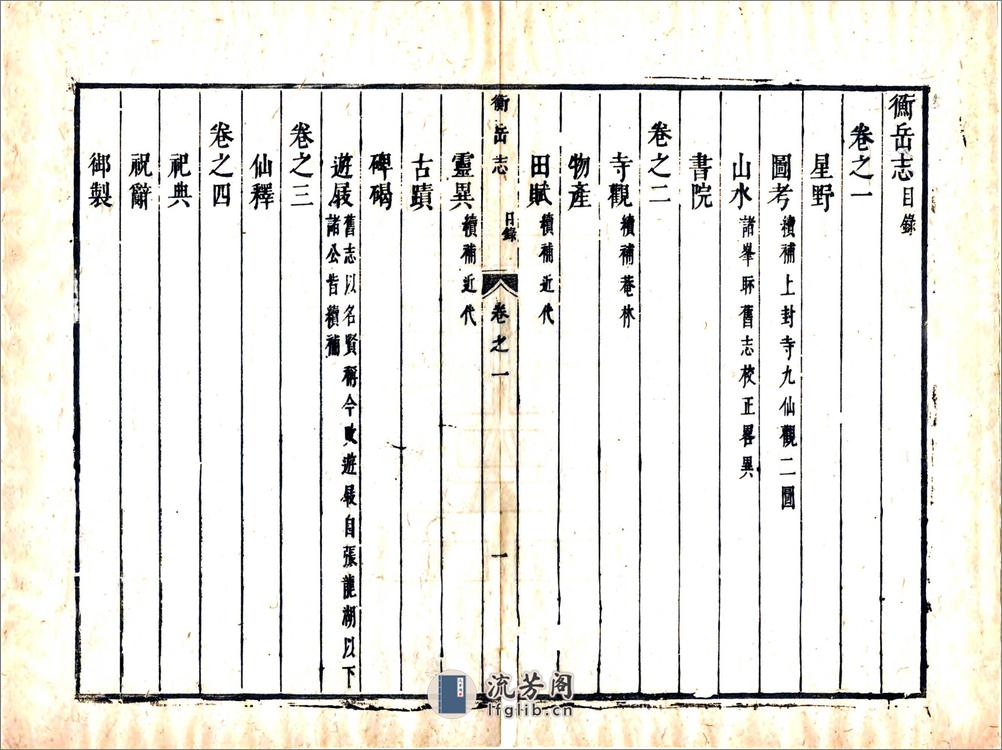 衡岳志目錄
卷之一
星野
圖考續補上封寺九仙觀二圖
山水諸峯眎舊志校正畧異
書院
卷之二
寺觀續補菴林
物產
田賦續補近代
衡岳志 目錄 卷之一 一
靈異續補近代
古蹟
碑碣
遊屐舊志以名賢稱今改遊屐自張龍湖以下諸公皆續補
卷之三
仙釋
卷之四
祀典
祝辭
御製
流芳阁
lfglib.cn